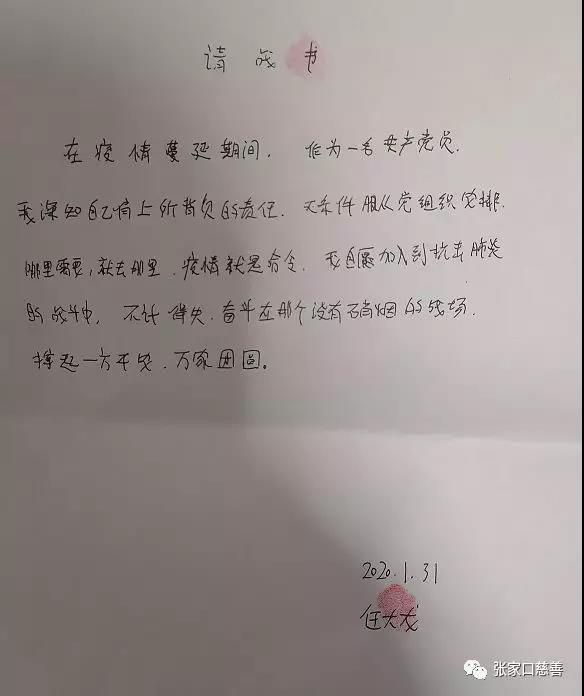 请战书
在疫情蔓延期间，作为一名共产党员，
我深知自己肩上所背负的责任，无条件服从党组织安排，
哪里需要，就去那里，疫情就是命令，我自愿加入到抗击肺炎
的战斗中，不计得失，奋斗在那个没有硝烟的战场，
撑起一方平安，万家团圆。
2020.1.31
任大龙
张家口慈善